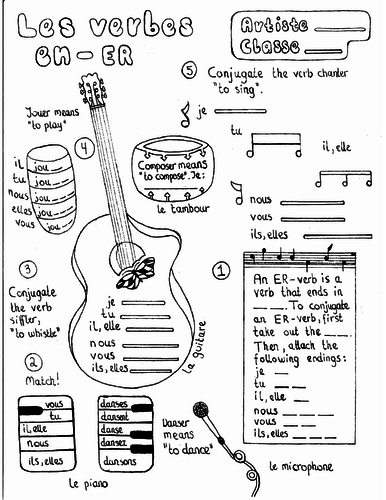 Les verbes
en-ER
Artiste
Classe
⑤ Conjugate the verb chanter
"to sing".
je
tu
il, elle
nous
vous
ils, elles
Jouer means
"to play"
④
il jou
tu jou
nous jou
elles jou
vous jou
Composer means
"to compose". Je:
le tambour
③
Conjugate
the verb
siffler,
"to whistle"
je
tu
il, elle
nous
vous
ils, elles
la guitare
①
An ER-verb is a
verb that ends in
__ __. To conjugate
an ER-verb, first
take out the __ __.
Then, attach the
following endings:
je
tu
il, elle
nous
vous
ils, elles
②
Match!
vous
tu
il, elle
nous
ils, elles
danses
dansent
danse
dansez
dansons
le piano
Danser
means
"to dance"
le microphone